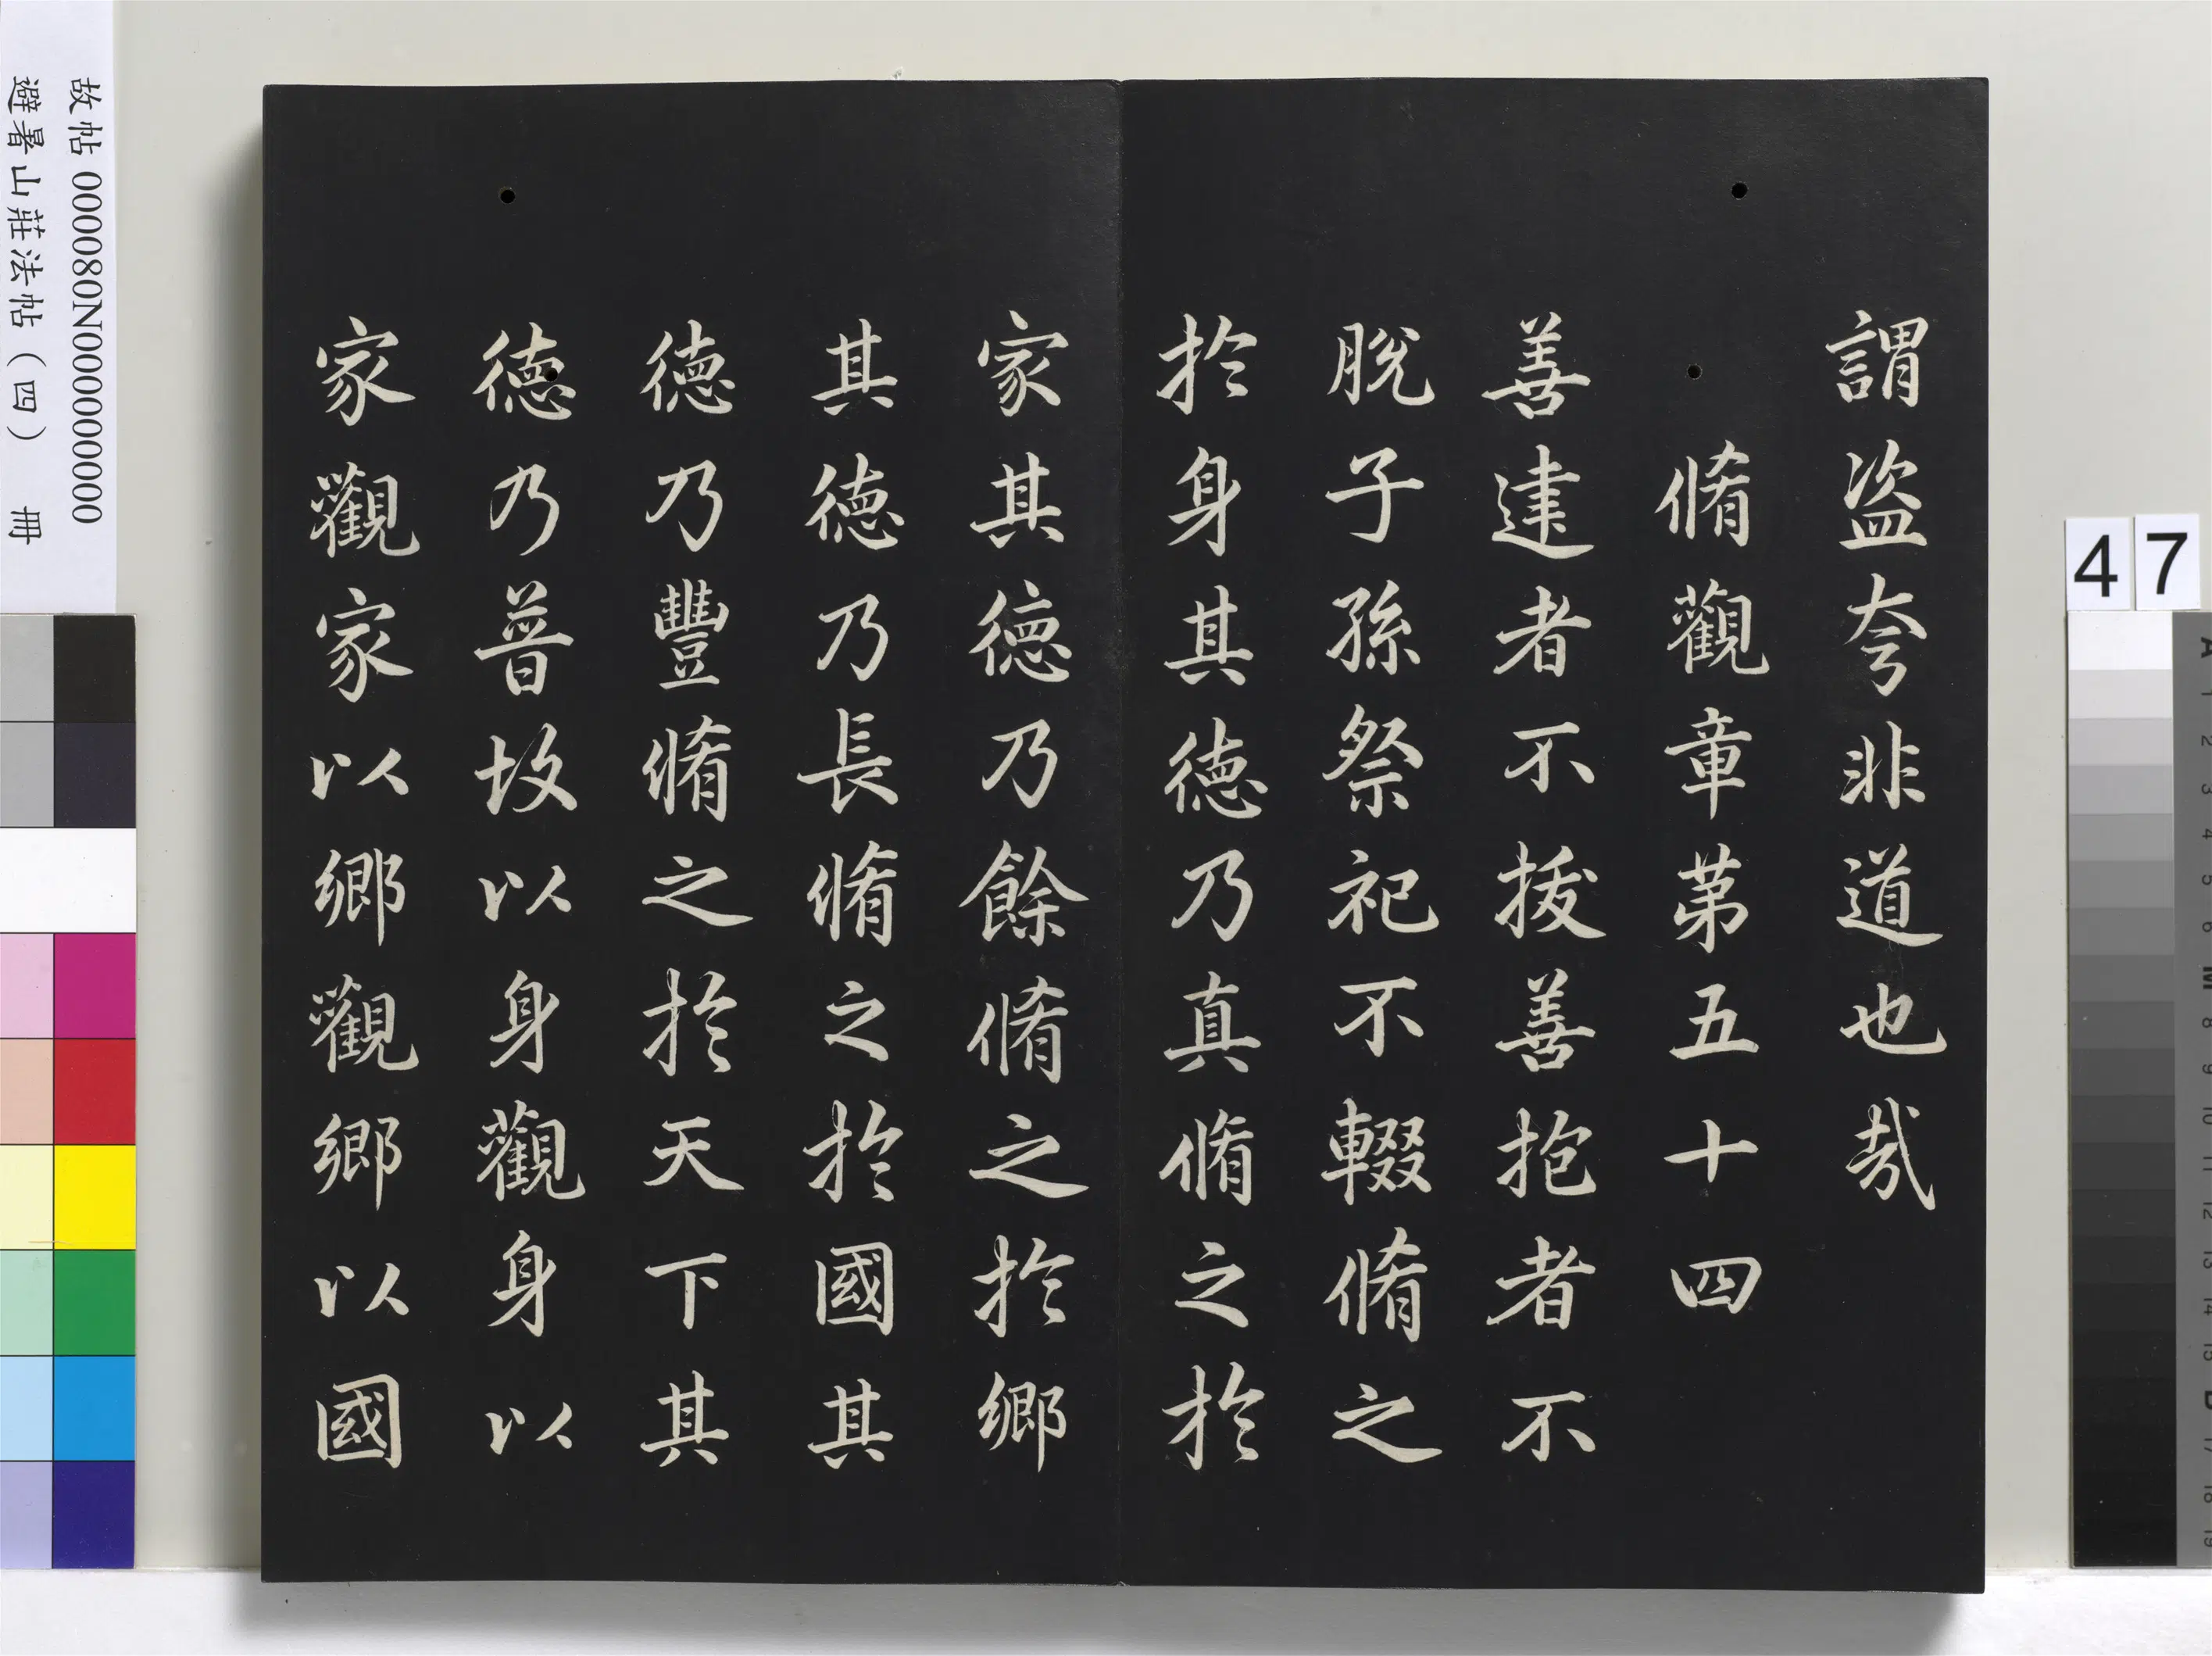 謂盗夸非道也哉
脩觀章第五十四
善建者不拔善抱者不
脫子孫祭祀不輟脩之
於身其德乃真脩之於
家其德乃餘脩之於鄉
其德乃長脩之於國其
德乃豐脩之於天下其
德乃普故以身觀身以
家觀家以鄉觀鄉以國
故帖 000080N000000000
避暑山莊法帖（四） 冊
47